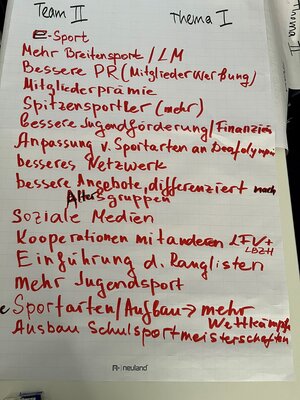 Team II Thema I
e-Sport
Mehr Breitensport/LM
Bessere PR (Mitglieder Werbung)
Mitgliederprämie
Spitzensportler (mehr)
bessere Jugendförderung/Finanzien
Anpassung v. Sportarten an Deaflympi
besseres Netzwerk
bessere Angebote, differenziert nach
Altersgruppen
Soziale Medien
Kooperationen mit anderen LFV +
LBZH
Einführung d. Ranglisten
mehr Jugendsport
Sportarten/Aufbau → mehr
Wettkämpfe
Ausbau Schulsportmeisterschaften
neuland
Thema